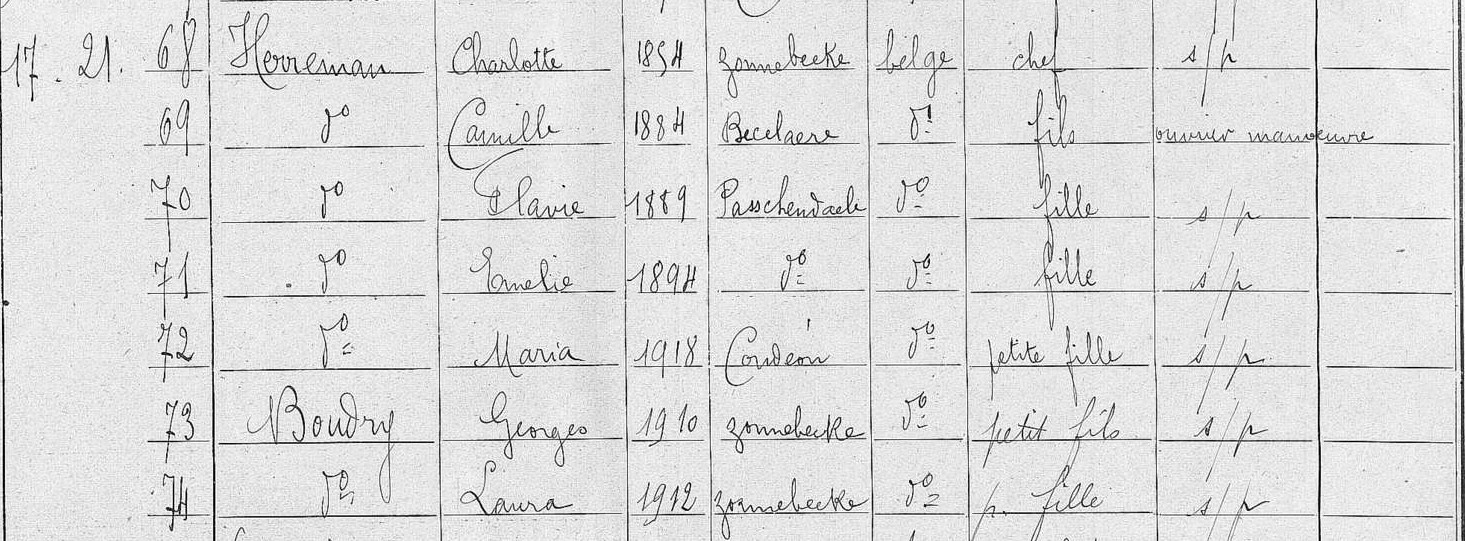 17. 21. 68 Herreman Charlotte 1854 zonnebecke belge chef s/p
69 do Camille 1884 Becelaere do fils ouvrier manoeuvre
70 do Flavie 1889 Passchendaele do fille s/p
71 do Emelie 1894 do do fille s/p
72 do Maria 1918 Condéon do petite fille s/p
73 Boudry Georges 1910 zonnebecke do petit fils s/p
74 do Laura 1912 zonnebecke do p. fille s/p